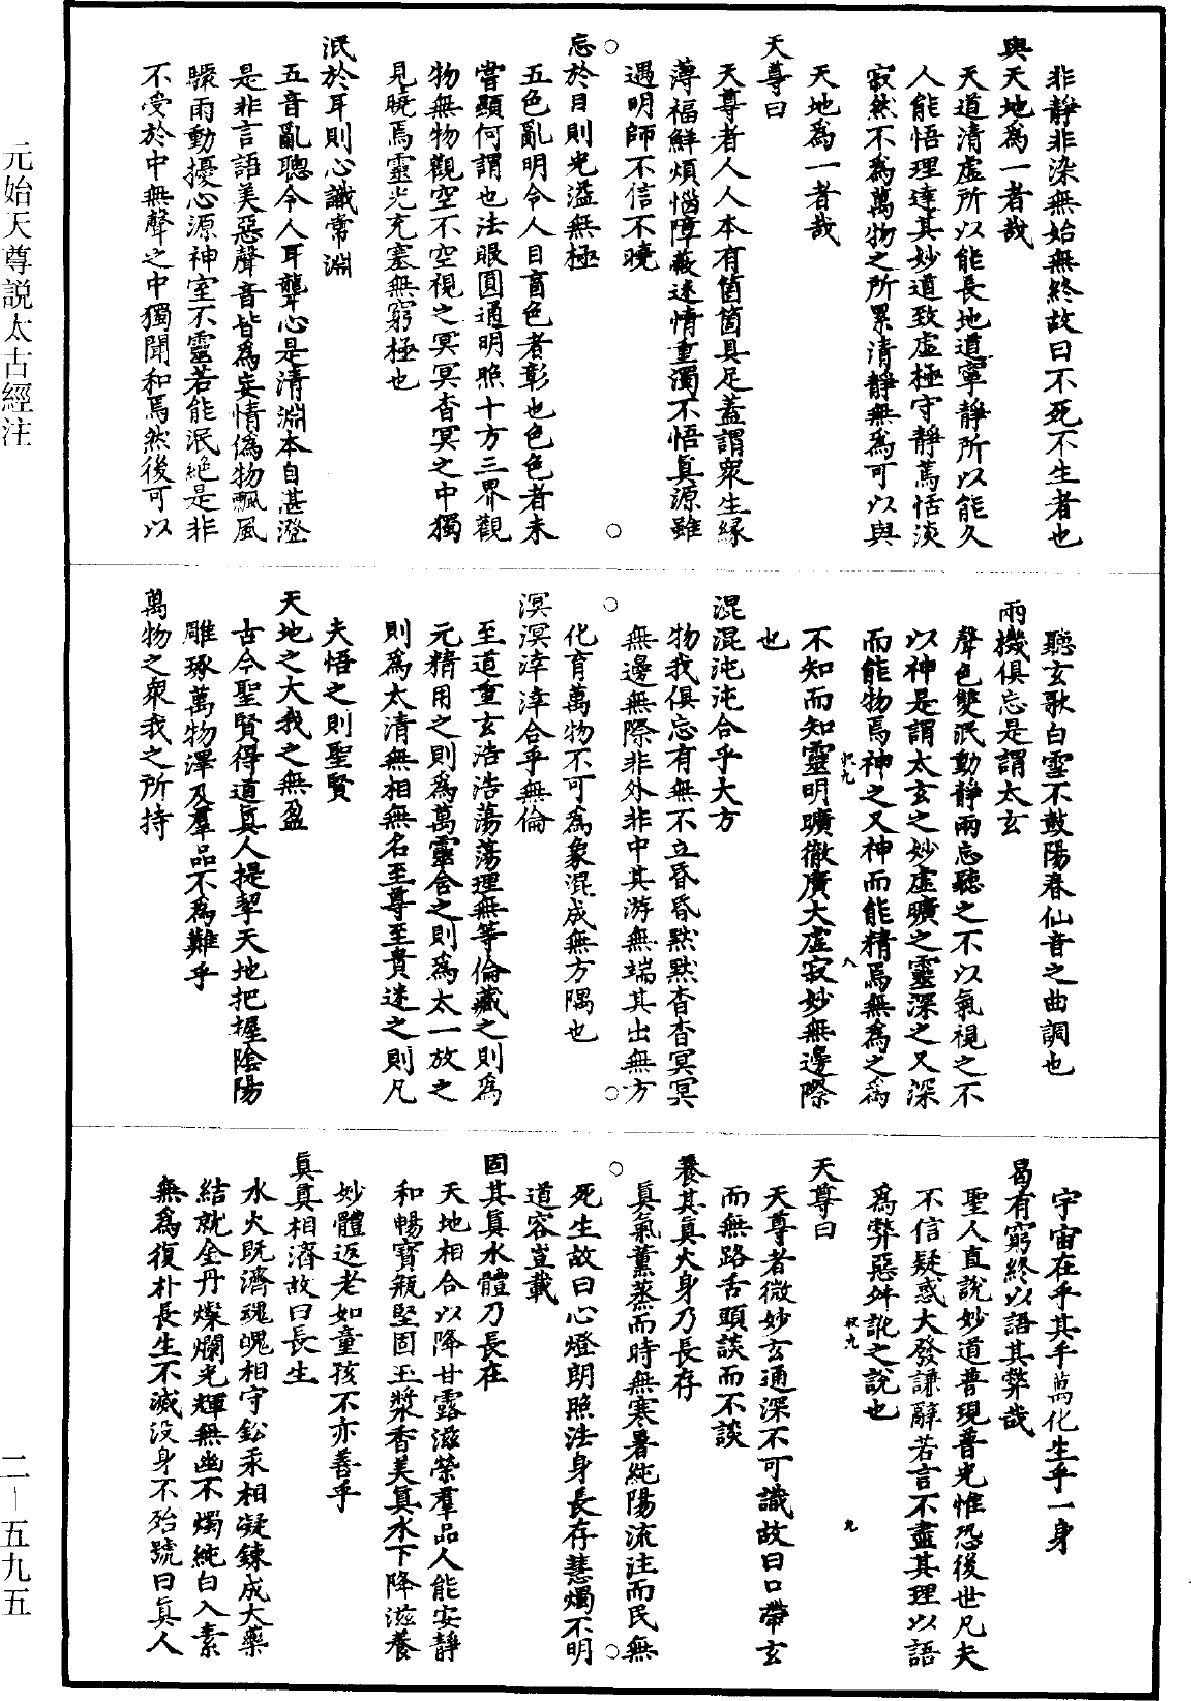 非靜非染無始無終故曰不死不生者也
與天地爲一者哉
天道清虛所以能長地道寧靜所以能久
人能悟理達其妙道致虛極守靜篤恬淡
寂然不爲萬物之所累清靜無爲可以與
天地爲一者哉
天尊曰
天尊者人人本有箇箇具足蓋謂衆生緣
薄福鮮煩惱障蔽迷情重濁不悟眞源雖
遇明師不信不曉
忘於目則光溢無極
五色亂明令人目盲色者彰也色色者未
嘗顯何謂也法眼圓通明照十方三界觀
物無物觀空不空視之冥冥杳冥之中獨
見曉焉靈光充塞無窮極也
泯於耳則心識常淵
五音亂聰令人耳聾心是清淵本自湛澄
是非言語美惡聲音皆爲妄情僞物飄風
驟雨動擾心源神室不靈若能泯絶是非
不受於中無聲之中獨聞和焉然後可以
聽玄歌白雪不鼓陽春仙音之曲調也
兩機俱忘是謂太玄
聲色雙泯動靜兩忘聽之不以氣視之不
以神是謂太玄之妙虛曠之靈深之又深
而能物焉神之又神而能精焉無爲之爲
不知而知靈明曠徹廣大虛寂妙無邊際
也
混混沌沌合乎大方
物我俱忘有無不立昏昏默默杳杳冥冥
無邊無際非外非中其游無端其出無方
化育萬物不可爲象混成無方隅也
溟溟涬涬合乎無倫
至道重玄浩浩蕩蕩理無等倫藏之則爲
元精用之則爲萬靈含之則爲太一放之
則爲太清無相無名至尊至貴迷之則凡
夫悟之則聖賢
天地之大我之無盈
古今聖賢得道眞人提挈天地把握陰陽
雕琢萬物澤及羣品不爲難乎
萬物之衆我之所持
宇宙在乎其手萬化生乎一身
曷有窮終以語其弊哉
聖人直說妙道普現普光惟恐後世凡夫
不信疑惑大發謙辭若言不盡其理以語
爲弊惡舛訛之說也
天尊曰
天尊者微妙玄通深不可識故曰口帶玄
而無路舌頭談而不談
養其眞火身乃長存
眞氣薰蒸而時無寒暑純陽流注而民無
死生故曰心燈朗照法身長存慧燭不明
道容豈載
固其眞水體乃長在
天地相合以降甘露滋榮羣品人能安靜
和暢寶瓶堅固玉漿香美眞水下降滋養
妙體返老如童孩不亦善乎
眞眞相濟故曰長生
水火既濟魂魄相守鉛汞相凝鍊成大藥
結就金丹燦爛光輝無幽不燭純白入素
無爲復朴長生不滅没身不殆號曰眞人
元始天尊説太古經注
二—五九五